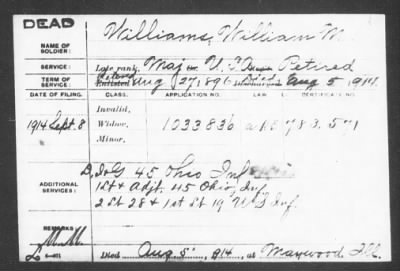 DEAD
Williams, William M.
NAME OF SOLDIER:
SERVICE: Late rank, Maj. U.S. Army Retired
TERM OF SERVICE: Retired Enlisted Aug 27, 1896 Died Aug 5, 1914.
DATE OF FILING. CLASS. APPLICATION NO. LAW. CERTIFICATE NO.
Invalid,
1914 Sept. 8 Widow, 1033836 783.571
Minor,
ADDITIONAL SERVICES:
D, I & G 45 Ohio Inf
1 Lt & Adjt. 45 Ohio, Inf
2 Lt 28 & 1st Lt 19 U S Inf
REMARKS:
Died Aug 5, 1914, at Maywood Ill.